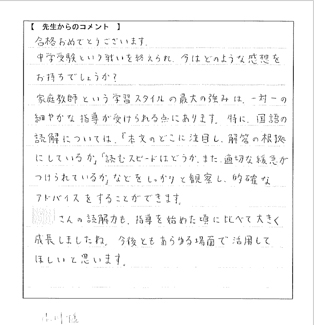 【 先生からのコメント 】
合格おめでとうございます。
中学受験という戦いを終えられ、今はどのような感想を
お持ちでしょうか？
家庭教師という学習スタイルの最大の強みは、一対一の
細やかな指導が受けられる点にあります。特に、国語の
読解については、「本文のどこに注目し、解答の根拠
にしているか」「読むスピードはどうか、また、適切な緩急が
つけられているか」などをしっかりと観察し、的確な
アドバイスをすることができます。
さんの読解力も、指導を始めた頃に比べて大きく
成長しましたね。今後ともあらゆる場面で活用して
ほしいと思います。